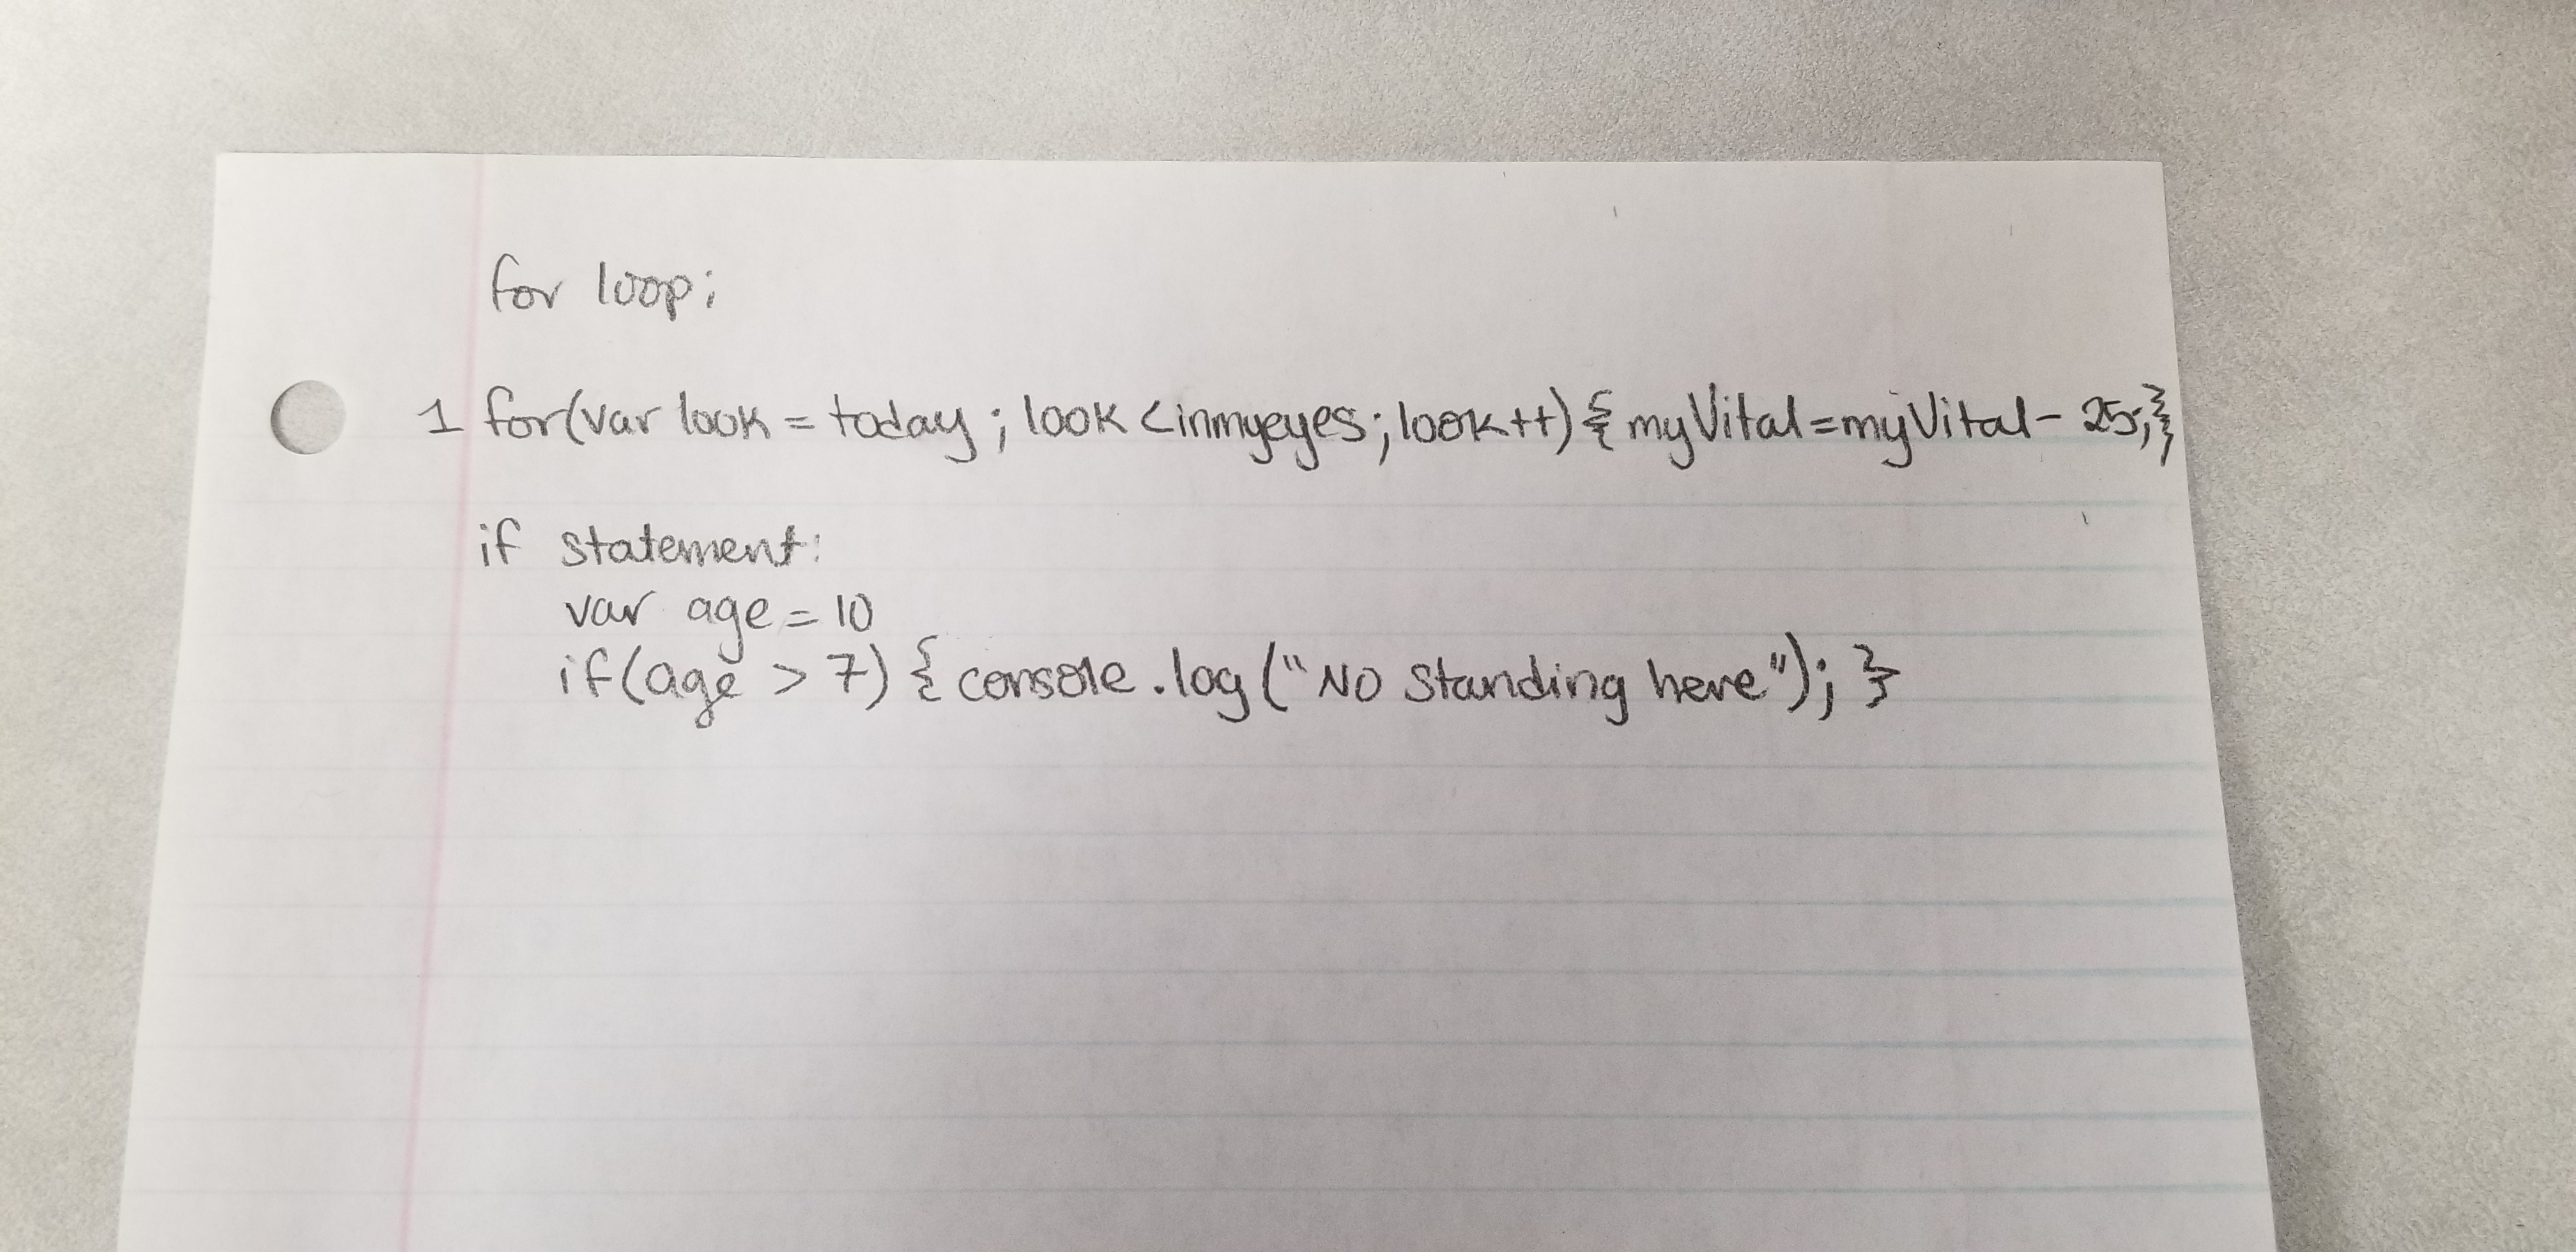 for loop;
1 for(var look = today; look < inmyeyes; look++) { myVital = myVital - 25; };
if statement:
var age = 10
if(age > 7) { console.log("No standing here"); }